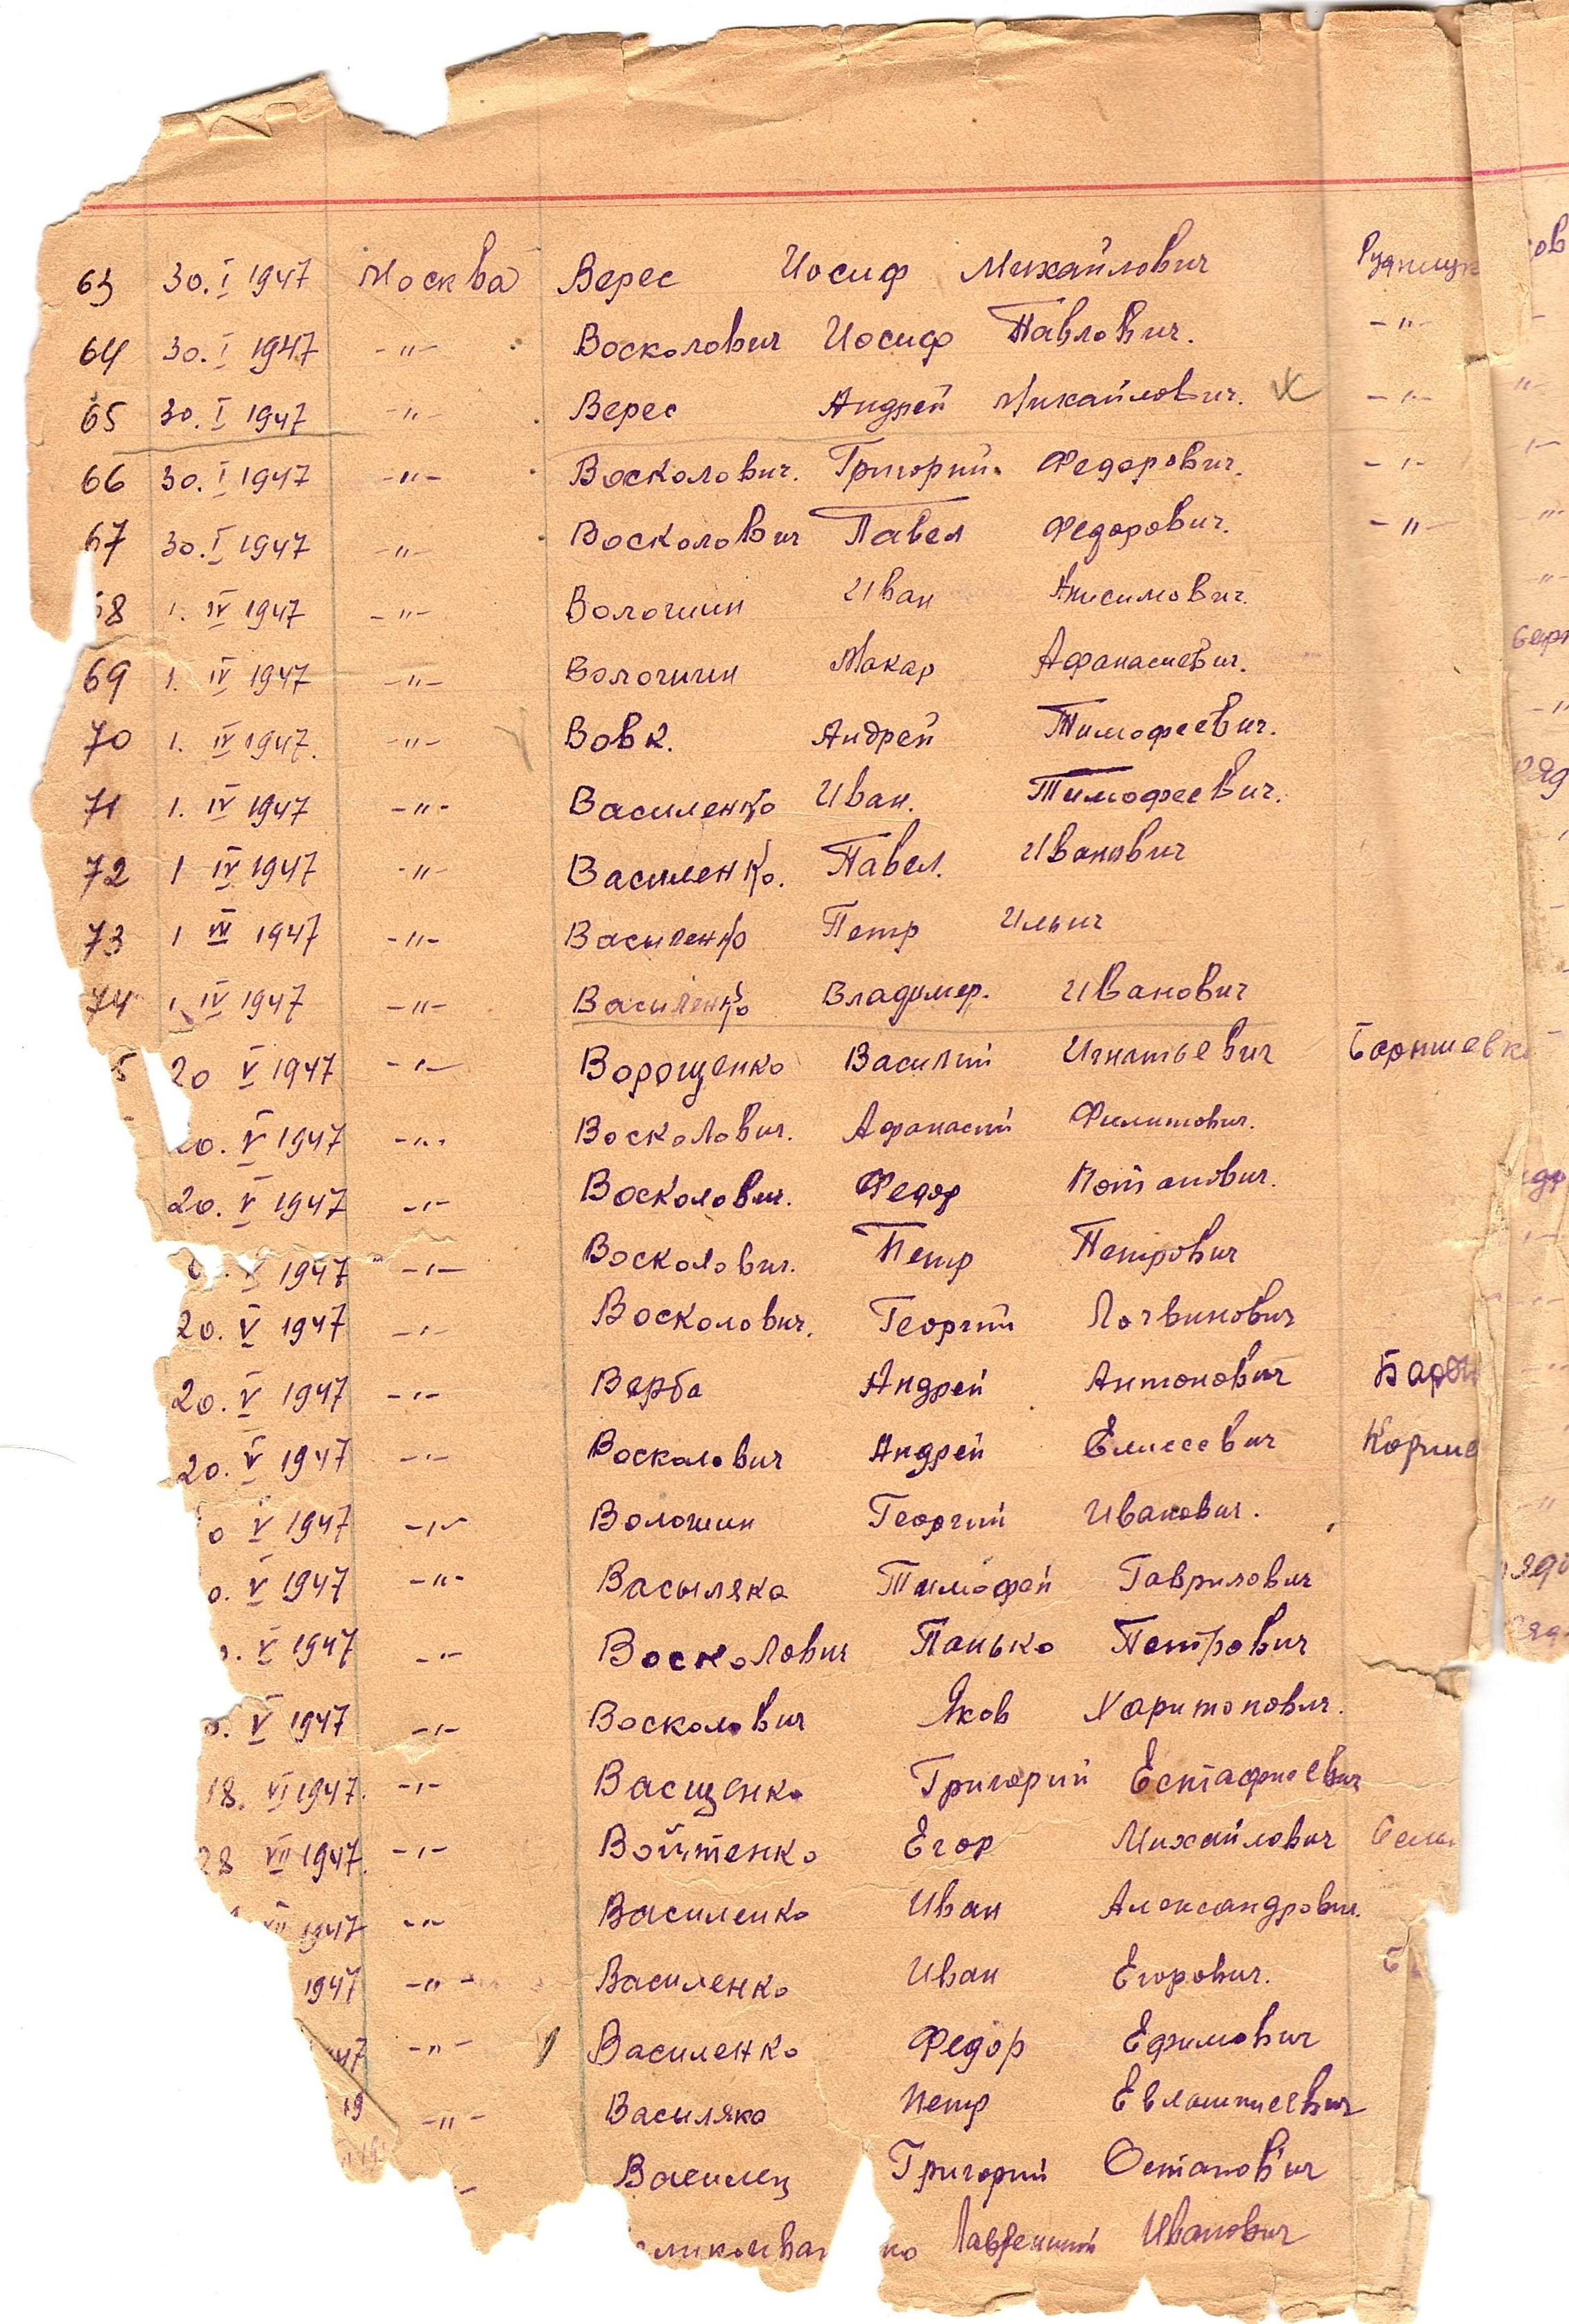 63 30. I 1947 Москва Верес Иосиф Михайлович
64 30. I 1947 -"- Восколович Иосиф Павлович. -"-
65 30. I 1947 -"- Верес Андрей Михайлович. -"-
66 30. I 1947 -"- Восколович. Григорий. Федорович. -"-
67 30. I 1947 -"- Восколович Павел Федорович. -"-
68 1. IV 1947 -"- Волошин Иван Анисимович.
69 1. IV 1947 -"- Волошин Макар Афанасиевич.
70 1. IV 1947. -"- Вовк. Андрей Тимофеевич.
71 1. IV 1947 -"- Василенко Иван. Тимофеевич.
72 1 IV 1947 -"- Василенко. Павел. Иванович
73 1 IV 1947 -"- Василенко Петр Ильич
74 1. IV 1947 -"- Василенко Владимер. Иванович
5 20 V 1947 -"- Ворощенко Василий Игнатьевич
20. V 1947 -"- Восколович. Афанасий Филипович.
20. V 1947 -"- Восколович. Федор Потапович.
V 1947 -"- Восколович. Петр Петрович
20. V 1947 -"- Восколович. Георгий Логвинович
20. V 1947 -"- Верба Андрей Антонович
20. V 1947 -"- Восколович Андрей Елисеевич
0 V 1947 -"- Волошин Георгий Иванович.
0. V 1947 -"- Васыляка Тимофей Гаврилович
. V 1947 -"- Восколович Панько Петрович
0. V 1947 -"- Восколович Яков Харитонович.
18. VI 1947. -"- Ващенко Григорий Естафиевич
28 VII 1947. -"- Войтенко Егор Михайлович
1947 -"- Василенко Иван Александрович.
1947 -"- Василенко Иван Егорович.
47 -"- Василенко Федор Ефимович
19 -"- Васыляка Петр Евлампиевич
Василец Григорий Остапович
ко Лаврентий Иванович